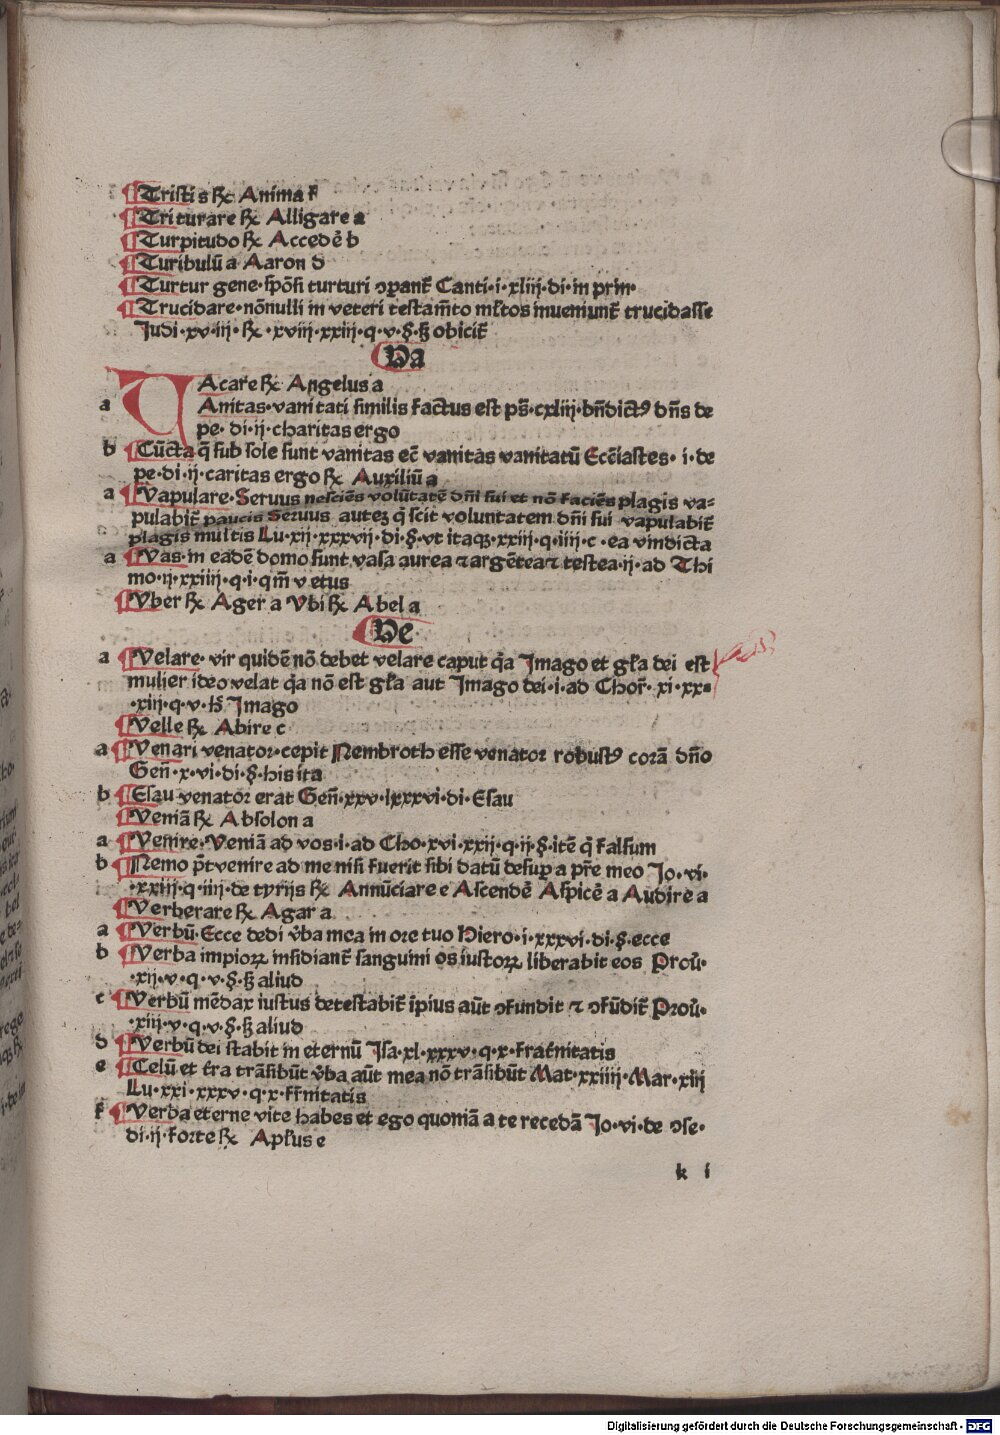 ¶Tristis ℞ Anima f
¶Triturare ℞ Alligare a
¶Turpitudo ℞ Accedē b
¶Turibulū a Aaron d
¶Turtur gene·spōsi turturi ꝯparant᷑ Canti·i·xliij·di·in prin·
¶Trucidare·nōnulli in veteri testam̄to ml̄tos inueniunt᷑ trucidasse
Judi·xv·iij·℞·xviij·xxiij·q·v·§·ꜩ obicit᷑
¶Va
VAcare ℞ Angelus a
a Anitas·vanitati similis factus est ps̄·cxliij·bn̄dictꝰ dn̄s de
pe·di·ij·charitas ergo
b ¶Cūcta q̄ sub sole sunt vanitas eē vanitas vanitatū Ecc̄iastes·i·de
pe·di·ij·caritas ergo ℞ Auxiliū a
a ¶Vapulare·Seruus nesciēs volūtatē dn̄i sui et nō faciēs plagis va-
pulabit᷑ paucis Seruus autez q̄ scit voluntatem dn̄i sui vapulabit᷑
plagis multis Lu·xij·xxxvij·di·§·vt itaqꝫ·xxiij·q·iiij·c·ea vindicta
a ¶Vas·in eadē domo sunt vasa aurea ⁊ argētea ⁊ testea·ij·ad Thi
mo·ij·xxiiij·q·i·qm̄ vetus
¶Vber ℞ Ager a Vbi ℞ Abel a
¶Ve
a ¶Velare·vir quidē nō debet velare caput q̄a Jmago et gl̄a dei est
mulier ideo velat q̄a nō est gl̄a aut Jmago dei·i·ad Chor̄·xi·xx-
·xiij·q·v·hꝫ Jmago
¶Velle ℞ Abire c
a ¶Venari venator·cepit Nembroth esse venator robustꝰ corā dn̄o
Gen̄·x·vi·di·§·his ita
b ¶Esau venator erat Gen̄·xxv·lxxxvi·di·Esau
¶Veniā ℞ Absolon a
a ¶Venire·Veniā ad vos·i·ad Cho·xvi·xxij·q·ij·§·itē q̄ falsum
b ¶Nemo p̄t venire ad me nisi fuerit sibi datū desuꝑ a pr̄e meo Jo·vi·
·xxiij·q·iiij·de tyrijs ℞ Annūciare e Ascendē Aspicē a Audire a
¶Verberare ℞ Agar a
a ¶Verbū·Ecce dedi v̄ba mea in ore tuo Hiero·i·xxxvi·di·§·ecce
b ¶Verba impioꝝ insidiant᷑ sanguini os iustoꝝ liberabit eos Prou̅·
·xij·v·q·v·§·ꜩ aliud
c ¶Verbū mēdax iustus detestabit᷑ īpius aūt ꝯfundit ⁊ ꝯfūdit᷑ Prou̅·
·xiij·v·q·v·§·ꜩ aliud
d ¶Verbū dei stabit in eternū Jsa·xl·xxxv·q·x·frat̄nitatis
e ¶Celū et t̄ra trāsibūt v̄ba aūt mea nō trāsibūt Mat·xxiiij·Mar·xiij
Lu·xxi·xxxv·q·x·fr̄nitatis
f ¶Verba eterne vite habes et ego quoniā a te recedā Jo·vi·de ꝯse·
di·ij·forte ℞ Apl̄us e
k i
Digitalisierung gefördert durch die Deutsche Forschungsgemeinschaft · DFG